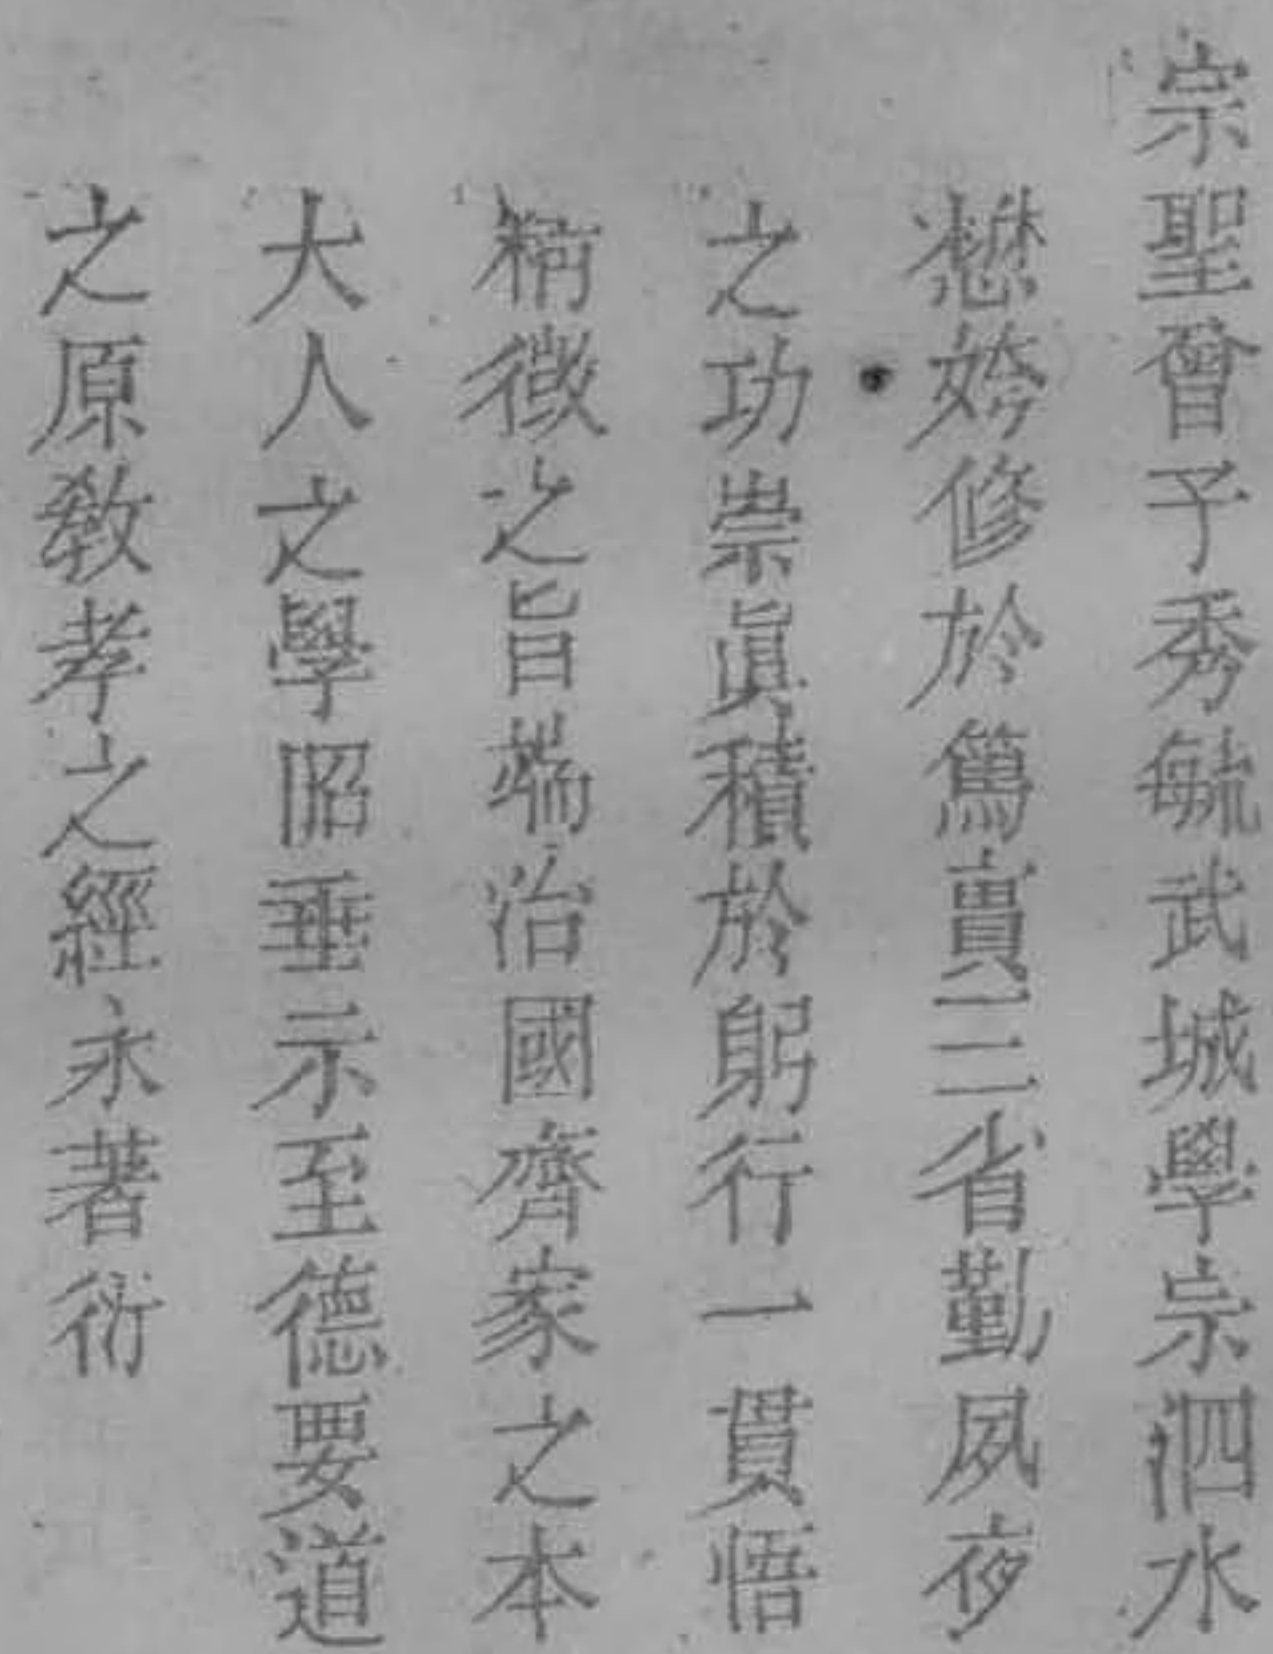 宗聖曾子秀毓武城學宗泗水
懋姱修於篤實三省勤夙夜
之功崇眞積於躬行一貫悟
精微之旨端治國齊家之本
大人之學昭垂示至德要道
之原敎孝之經永著衍